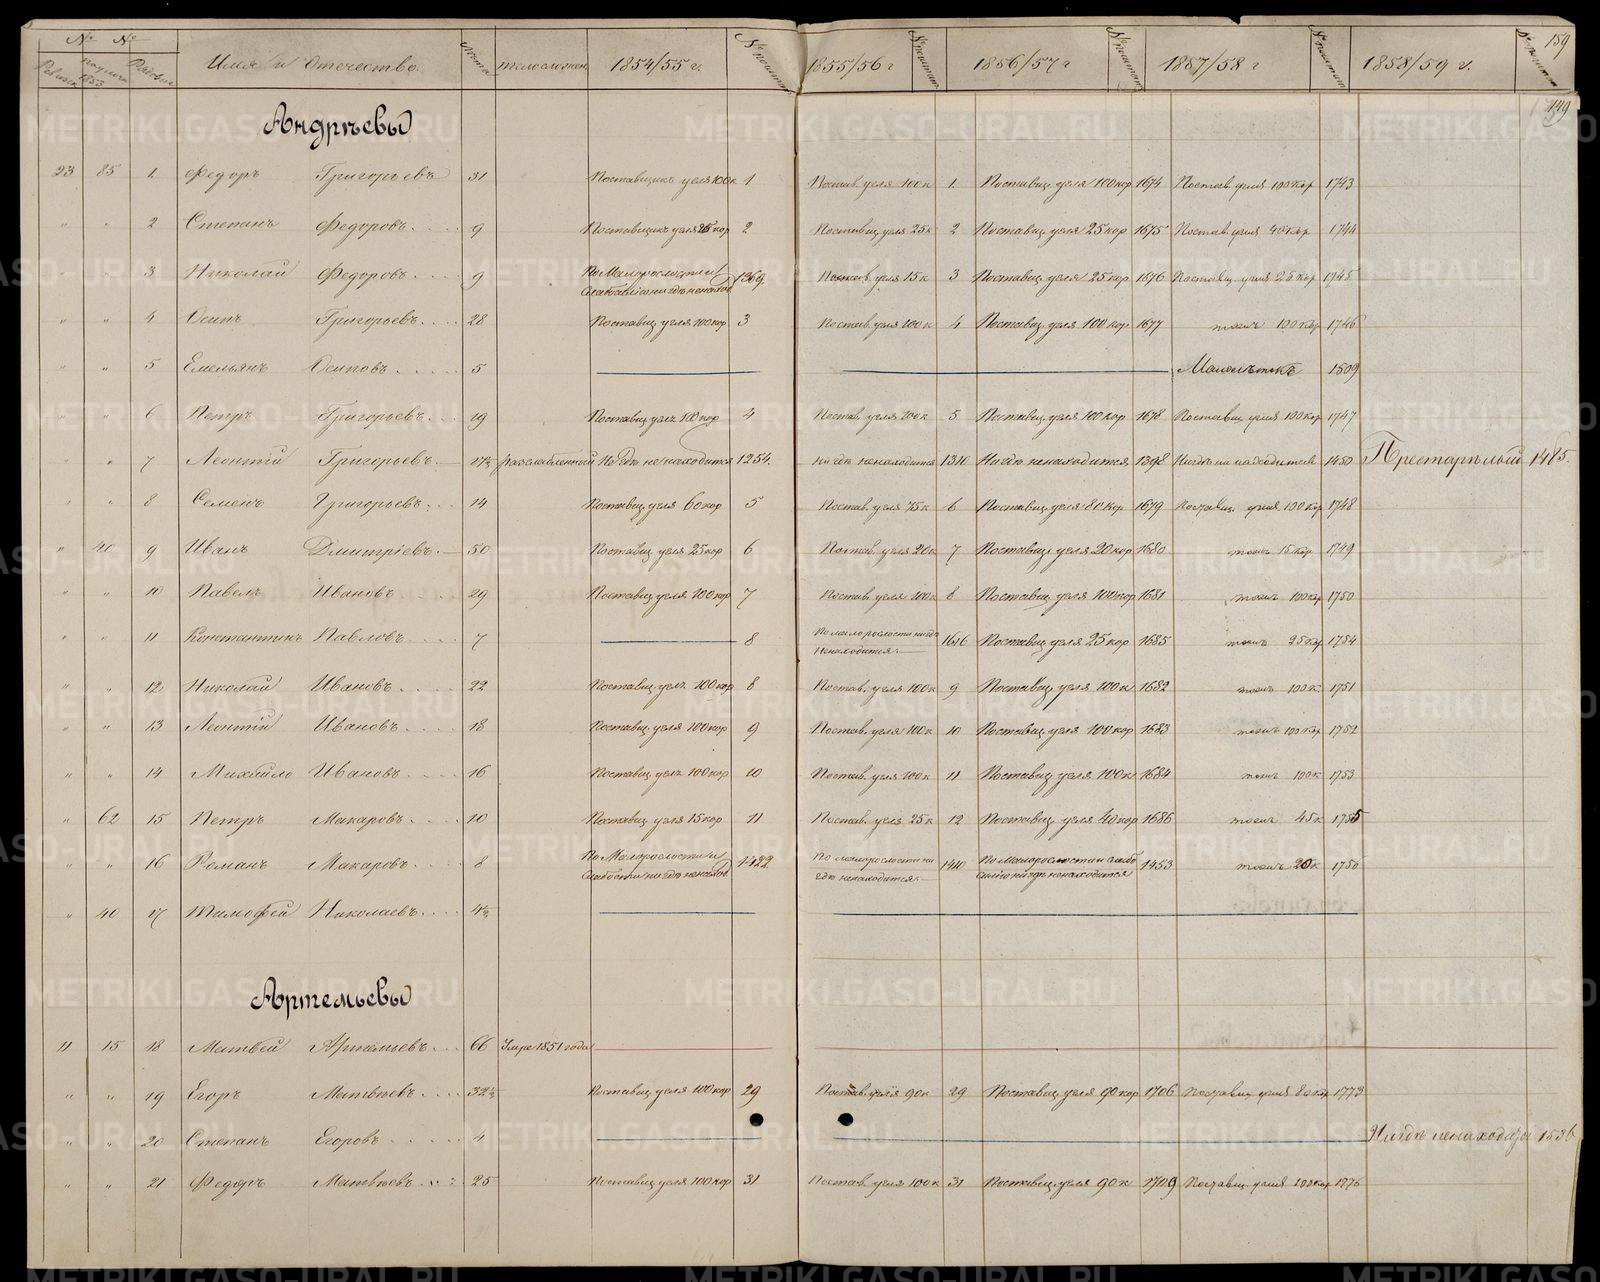 № № Имя и Отечество. Лета телосложен. 1854/55 г. № 1855/56 г № 1856/57 г № 1857/58 г № 1858/59 г. № 159
Ревизск. 1853 Рядовые
149
Андрѣевы
23 85 1 Федоръ Григорьевъ 31 Поставщикъ угля 100 к 1 Постав. угля 100 к 1. Поставщ. угля 100 кор 1674 Постав. угля 100 кор 1743
" " 2 Степанъ Федоровъ 9 Поставщикъ угля 25 кор 2 Поставщ угля 25 к 2 Поставщ. угля 25 кор 1675 Постав. угля 40 кор 1744
" " 3 Николай Федоровъ 9 По Малорослости и слабосилiю нигдѣ ненаход 1369. Постав. угля 15 к 3 Поставщ. угля 25 кор 1676 Поставщ. угля 25 кор 1745
" " 4 Осипъ Григорьевъ 28 Поставщ угля 100 кор 3 Постав. угля 100 к 4 Поставщ. угля 100 кор 1677 тожъ 100 кор 1746
" " 5 Емельянъ Осиповъ 5 Малолѣтокъ 1509
" " 6 Петръ Григорьевъ 19 Поставщ угля 100 кор 4 Постав. угля 100 к 5 Поставщ. угля 100 кор 1678 Поставщ угля 100 кор 1747
" " 7 Леонтiй Григорьевъ разслабленный Нигдѣ не находится 1254. нигдѣ ненаходится 1310 Нигдѣ ненаходится 1398 Нигдѣ не находится 1450 Престарѣлый 1415.
" " 8 Семенъ Григорьевъ 14 Поставщ. угля 60 кор 5 Постав. угля 75 к 6 Поставщ. угля 80 кор 1679 Поставщ. угля 100 кор 1748
" 40 9 Иванъ Дмитрiевъ 50 Поставщ. угля 25 кор 6 Постав. угля 20 к 7 Поставщ. угля 20 кор 1680 тожъ 15 кор 1749
" " 10 Павелъ Ивановъ 29 Поставщ угля 100 кор 7 Постав угля 100 к 8 Поставщ угля 100 кор 1681 тожъ 100 кор 1750
" " 11 Константинъ Павловъ 7 8 По малорослости нигдѣ Ненаходится 1616 Поставщ угля 25 кор 1685 тожъ 25 кор 1754
" " 12 Николай Ивановъ 22 Поставщ. угля 100 кор 8 Постав. угля 100 к 9 Поставщ. угля 100 к 1682 тожъ 100 к 1751
" " 13 Леонтiй Ивановъ 18 Поставщ. угля 100 кор 9 Постав. угля 100 к 10 Поставщ угля 100 кор 1683 тожъ 100 кор 1752
" " 14 Михайло Ивановъ 16 Поставщ угля 100 кор 10 Постав. угля 100 к 11 Поставщ угля 100 к 1684 тожъ 100 к 1753
" 62 15 Петръ Макаровъ 10 Поставщ угля 15 кор 11 Постав. угля 25 к 12 Поставщ угля 40 кор 1686 тожъ 45 к 1755
" " 16 Романъ Макаровъ 8 По Малорослости и слабости нигдѣ ненаход 1422 По малорослости нигдѣ ненаходится 1410 По Малорослости и слабосилiю нигдѣ ненаходится 1453 тожъ 20 к 1756
" 40 17 Тимофей Николаевъ 4½
Артемьевы
11 15 18 Матвѣй Артемьевъ 66 Умре 1851 года
" " 19 Егоръ Матвѣевъ 32½ Поставщ угля 100 кор 29 Постав. угля 90 к 29 Поставщ. угля 90 кор 1706 Поставщ угля 80 кор 1773
" " 20 Степанъ Егоровъ 4 Нигдѣ ненаходился 1536
" " 21 Федоръ Матвѣевъ 25 Поставщ угля 100 кор 31 Постав угля 100 к 31 Поставщ. угля 90 к 1709 Поставщ. угля 100 кор 1776
METRIKI.GASO-URAL.RU